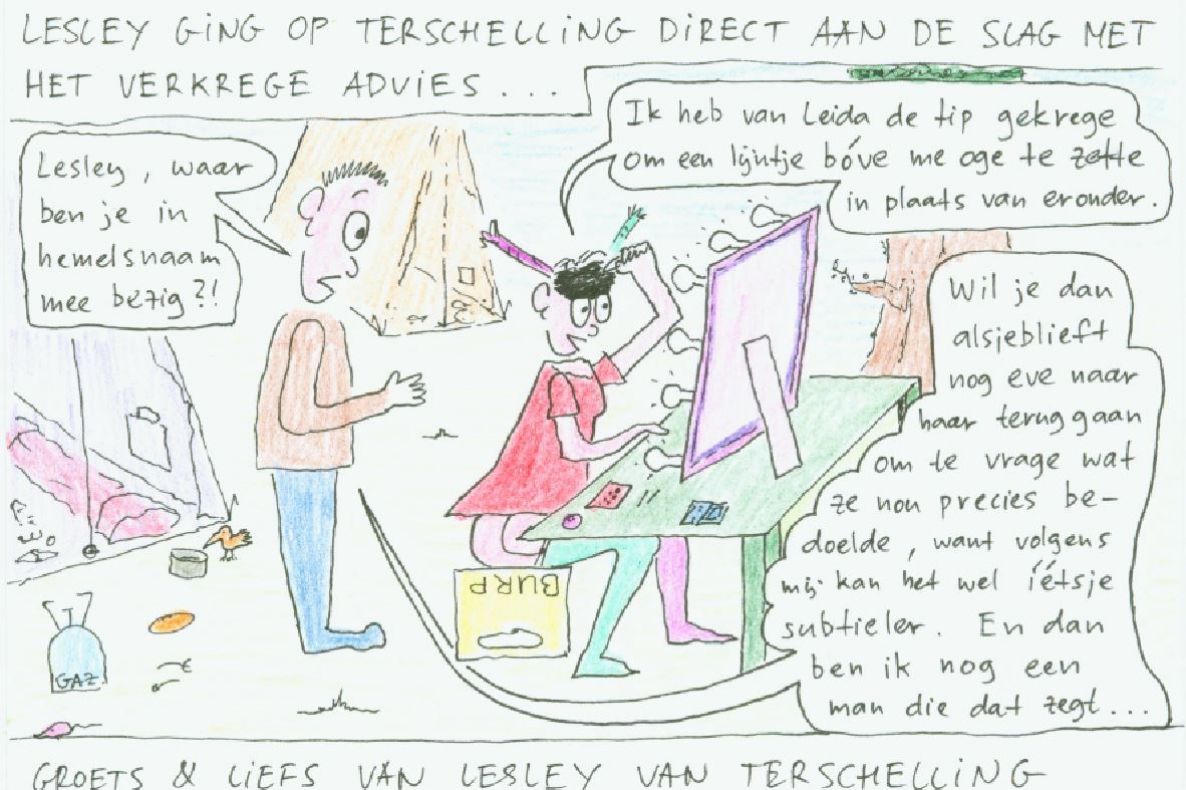 LESLEY GING OP TERSCHELLING DIRECT AAN DE SLAG MET
HET VERKREGE ADVIES...
Lesley, waar
ben je in
hemelsnaam
mee bezig?!
Ik heb van Leida de tip gekrege
om een lijntje bóve me oge te zette
in plaats van eronder.
Wil je dan
alsjeblieft
nog eve naar
haar terug gaan
om te vrage wat
ze nou precies be-
doelde, want volgens
mij kan het wel íétsje
subtieler. En dan
ben ik nog een
man die dat zegt...
BURP
GAZ
GROETS & LIEFS VAN LESLEY VAN TERSCHELLING